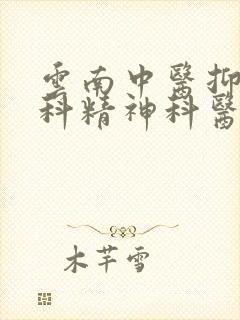 雲南中醫抑
科精神科醫
木芊雪